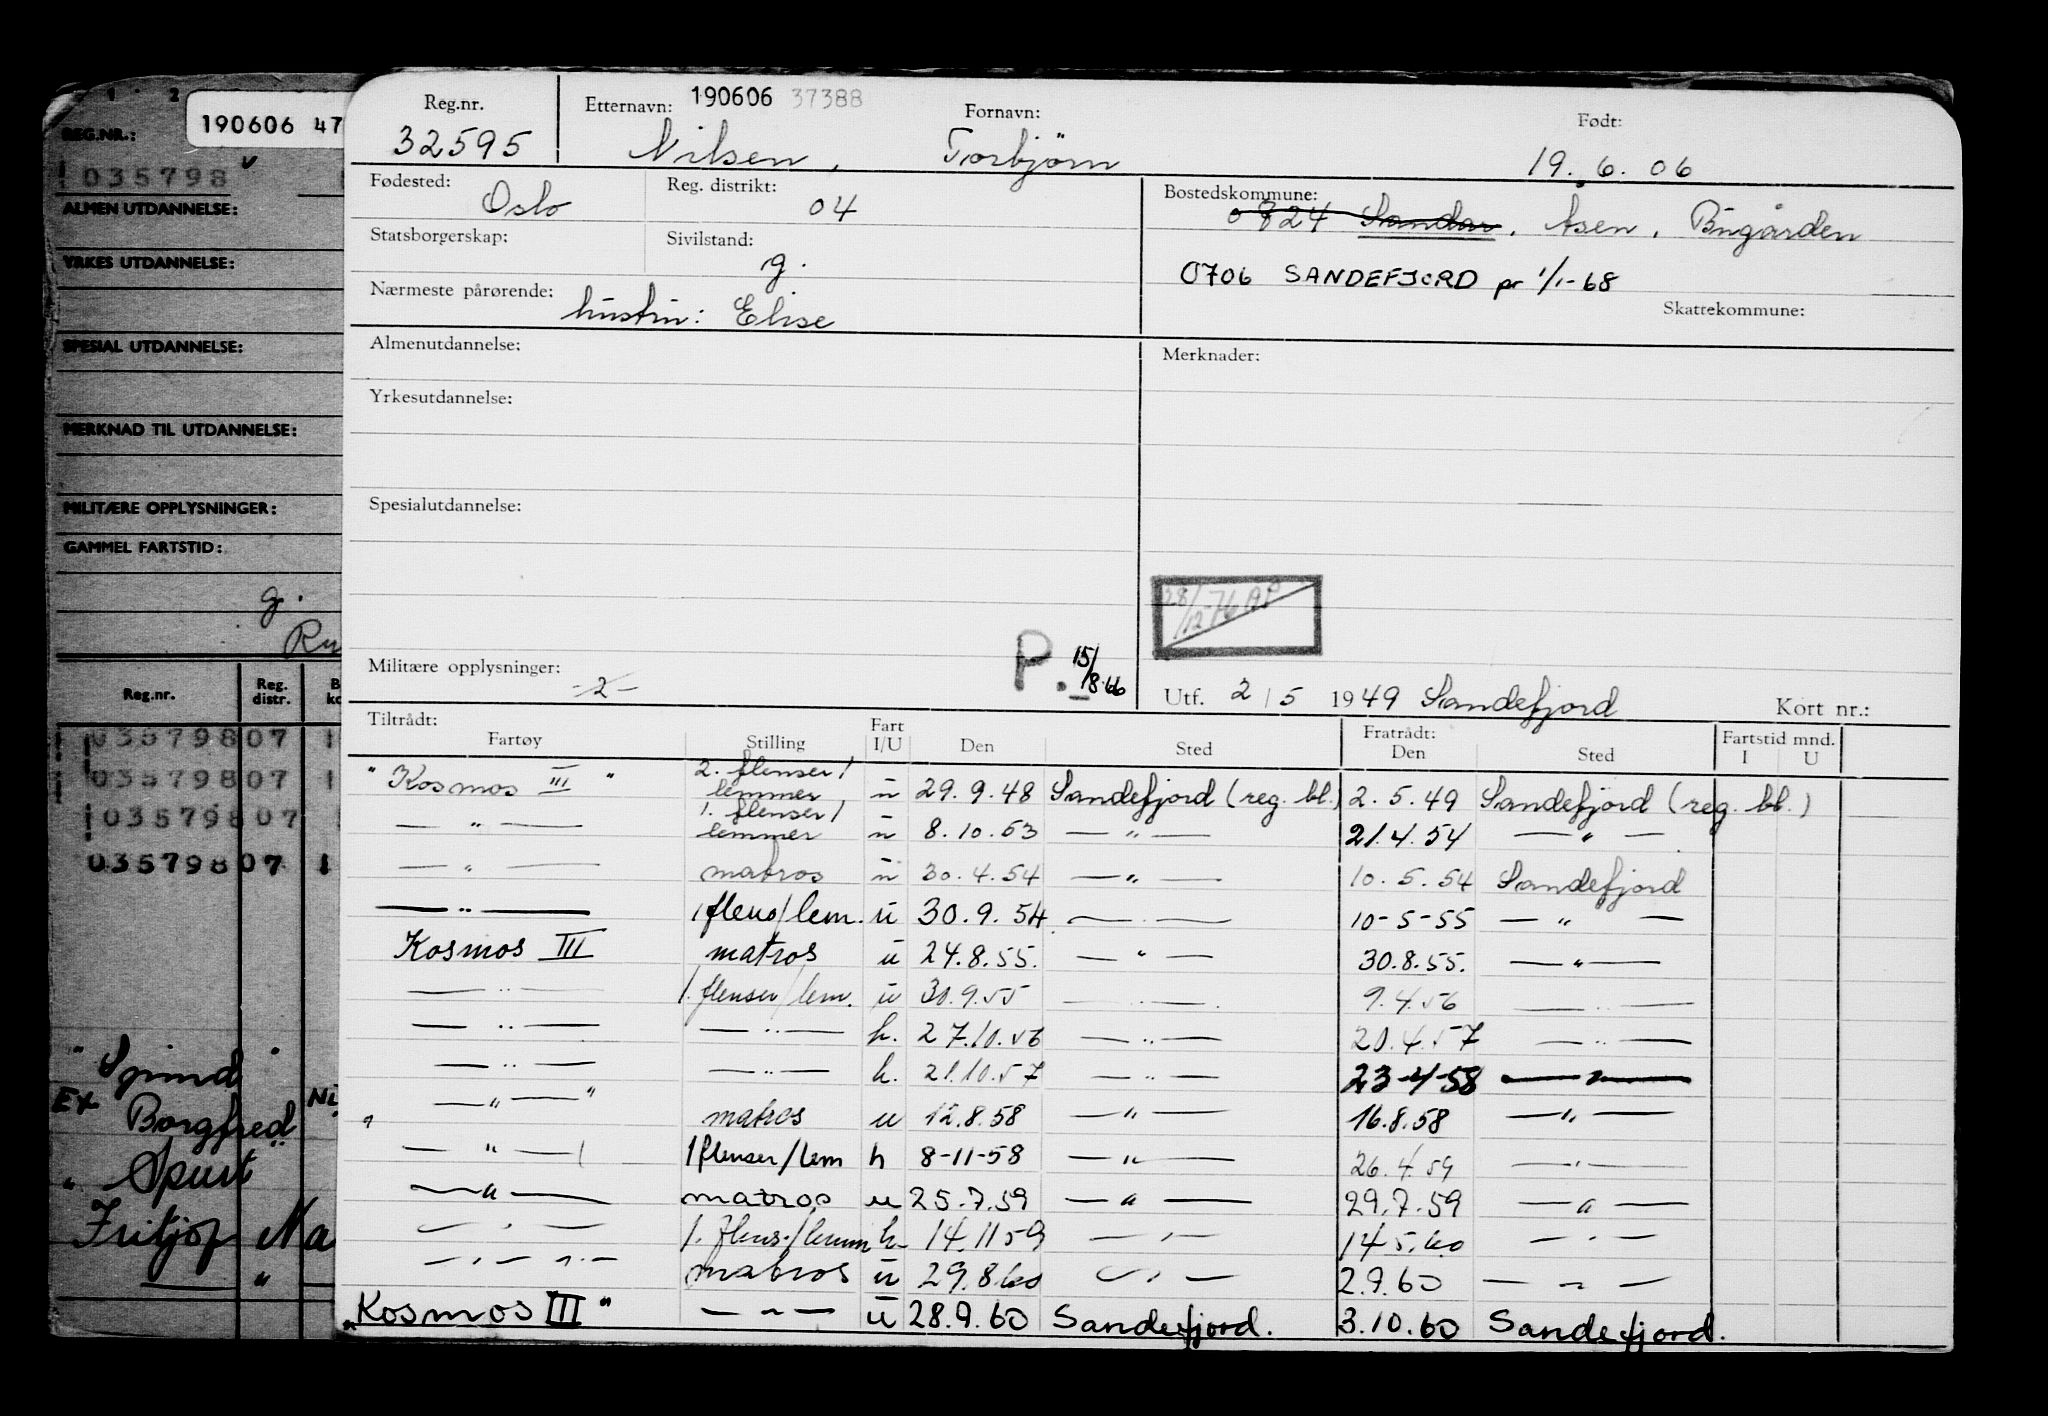 1 2
REG.NR.: 190606 47
035798
ALMEN UTDANNELSE:
YRKES UTDANNELSE:
SPESIAL UTDANNELSE:
MERKNAD TIL UTDANNELSE:
MILITÆRE OPPLYSNINGER:
GAMMEL FARTSTID:
g.
Reg.nr. Reg. distr.
035798 07 1
035798 07 1
035798 07
035798 07 1
" Spind "
Ex Borgfred
" Spurt "
Fritjof Na
"
Reg.nr. Etternavn: 190606 37388 Fornavn: Født:
32595 Nilsen, Torbjörn 19.6.06
Fødested: Oslo Reg. distrikt: 04 Bostedskommune: 0824 Sandar, Åsen, Bugården
Statsborgerskap: Sivilstand: g.
0706 SANDEFJORD pr 1/1-68
Nærmeste pårørende: hustru: Elise Skattekommune:
Almenutdannelse: Merknader:
Yrkesutdannelse:
Spesialutdannelse:
28/12-76 AP
Militære opplysninger: -2- P. 15/8.66
Utf. 2/5 1949 Sandefjord Kort nr.:
Tiltrådt: Fartøy Stilling Fart I/U Den Sted Fratrådt: Den Sted Fartstid mnd. I U
"Kosmos III" 2. flenser/lemmer u 29.9.48 Sandefjord (reg. bl.) 2.5.49 Sandefjord (reg. bl.)
— " — 1. flenser/lemmer u 8.10.53 — " — 21.4.54 — " —
— " — matros u 30.4.54 — " — 10.5.54 Sandefjord
— " — 1 flens/lem. u 30.9.54 — . — 10-5-55 — " —
Kosmos III matros u 24.8.55. — " — 30.8.55. — " —
— " — 1. flenser/lem. u 30.9.55 — . — 9.4.56 — " —
— " — — " — h. 27.10.56 — " — 20.4.57 — " —
— " — — " — h. 21.10.57 — " — 23-4-58 — " —
" — " — " matros u 12.8.58 — " — 16.8.58 — " —
— " — 1 flenser/lem h 8-11-58 — " — 26.4.59 — " —
— " — matros u 25.7.59 — " — 29.7.59 — " —
— " — 1. flens./lemm h- 14.11 59 — " — 14 5.60 — " —
— " — " — matros u 29.8.60 — " — 2.9.60 — " —
"Kosmos III" — " — u 28.9.60 Sandefjord. 3.10.60 Sandefjord.